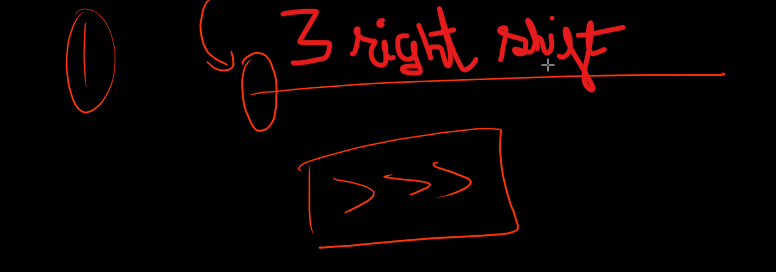 1
3 right shift
>>>